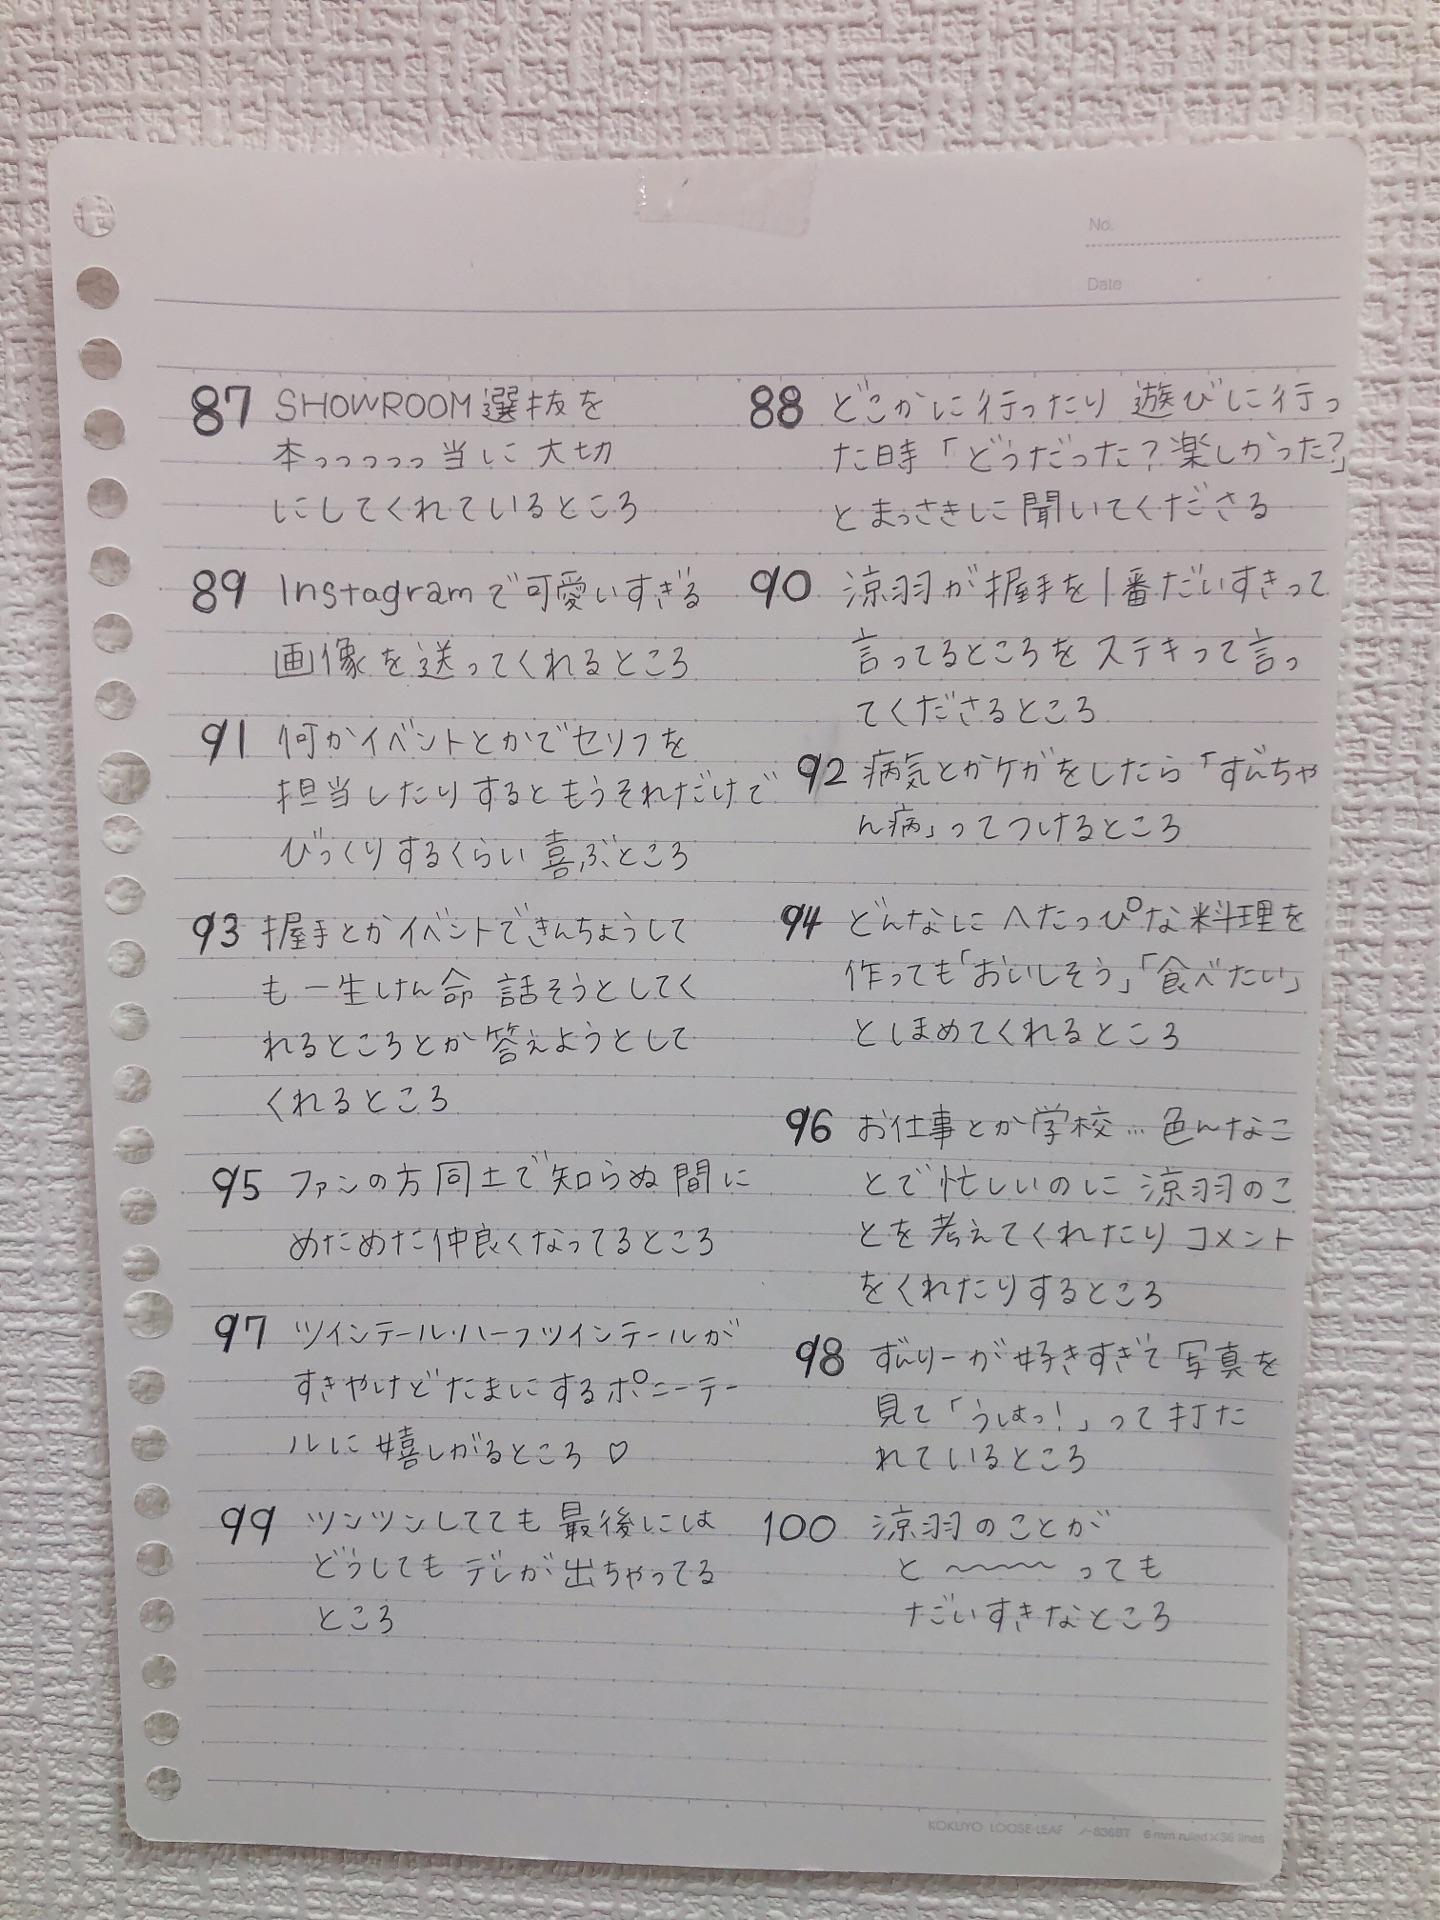 No.
Date
87 SHOWROOM選抜を
本っっっっっ当に大切
にしてくれているところ
88 どこかに行ったり 遊びに行っ
た時「どうだった？楽しかった？」
とまっさきに聞いてくださる
89 Instagramで可愛いすぎる
画像を送ってくれるところ
90 涼羽が握手を1番だいすきって
言ってるところをステキって言っ
てくださるところ
91 何かイベントとかでセリフを
担当したりするともうそれだけで
びっくりするくらい喜ぶところ
92 病気とかケガをしたら「ずんちゃ
ん病」ってつけるところ
93 握手とかイベントできんちょうして
も一生けん命 話そうとしてく
れるところとか答えようとして
くれるところ
94 どんなに へたっぴな料理を
作っても「おいしそう」「食べたい」
とほめてくれるところ
95 ファンの方同士で知らぬ間に
めためた仲良くなってるところ
96 お仕事とか学校…色んなこ
とで忙しいのに 涼羽のこ
とを考えてくれたりコメント
をくれたりするところ
97 ツインテール・ハーフツインテールが
すきやけどたまにするポニーテー
ルに嬉しがるところ♡
98 ずんりーが好きすぎて写真を
見て「うはっ！」って打た
れているところ
99 ツンツンしてても最後には
どうしてもデレが出ちゃってる
ところ
100 涼羽のことが
と〜〜〜〜っても
だいすきなところ
KOKUYO LOOSE-LEAF ノ-836BT 6 mm ruled×36 lines